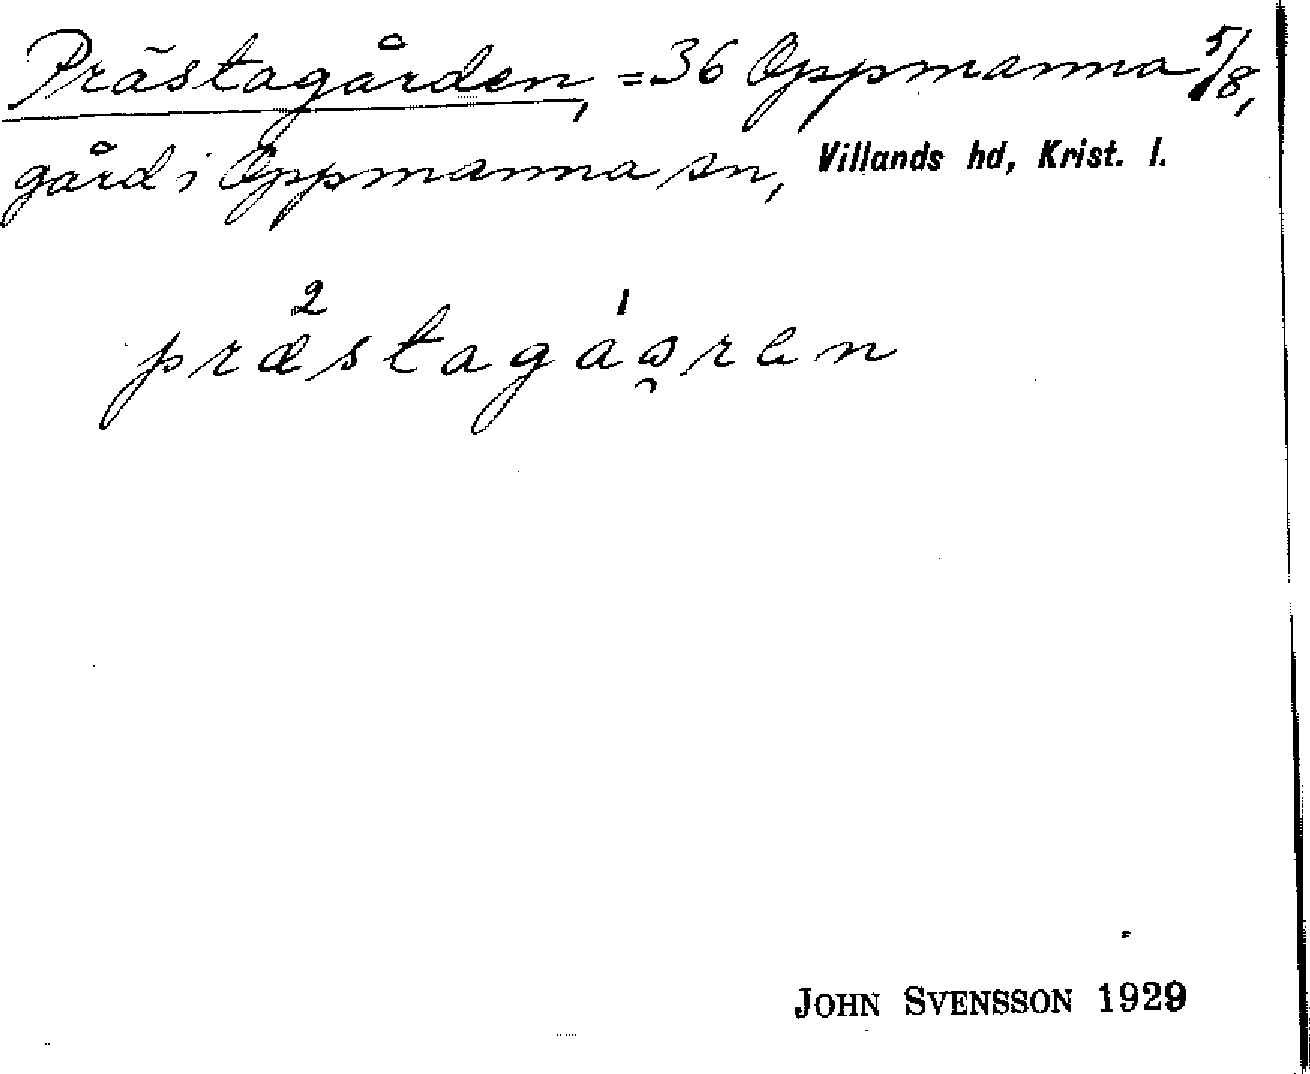 Prästagården, =36 Oppmanna 5/8,
gård i Oppmanna sn, Villands hd, Krist. l.
2 1
præstagáǫren
JOHN SVENSSON 1929